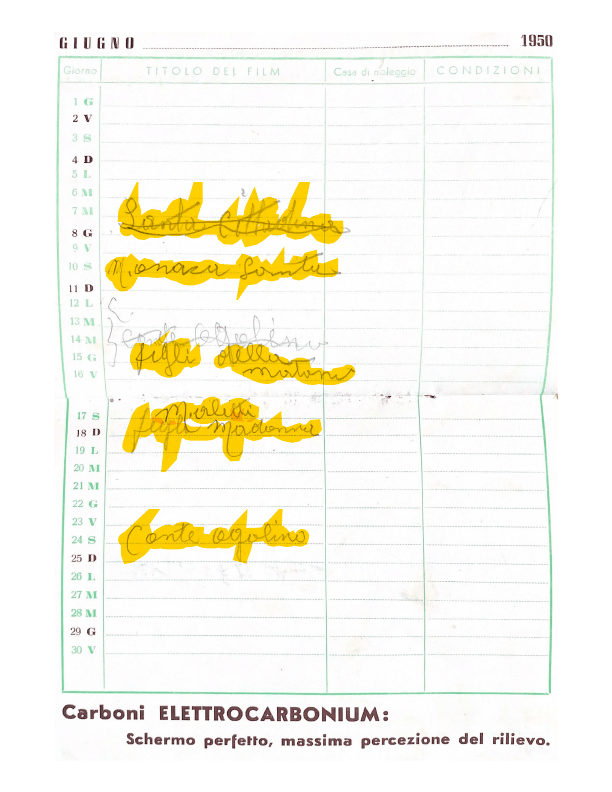 GIUGNO 1950
Giorno TITOLO DEL FILM Casa di noleggio CONDIZIONI
1 G
2 V
3 S
4 D
5 L
6 M
7 M Santa Cittadina
8 G
9 V
10 S Monaca Santa
11 D
12 L
13 M
14 M conte Ugolino
15 G figli della
16 V
17 S
18 D figli Madonna
19 L
20 M
21 M
22 G
23 V
24 S Conte Ugolino
25 D
26 L
27 M
28 M
29 G
30 V
Carboni ELETTROCARBONIUM:
Schermo perfetto, massima percezione del rilievo.